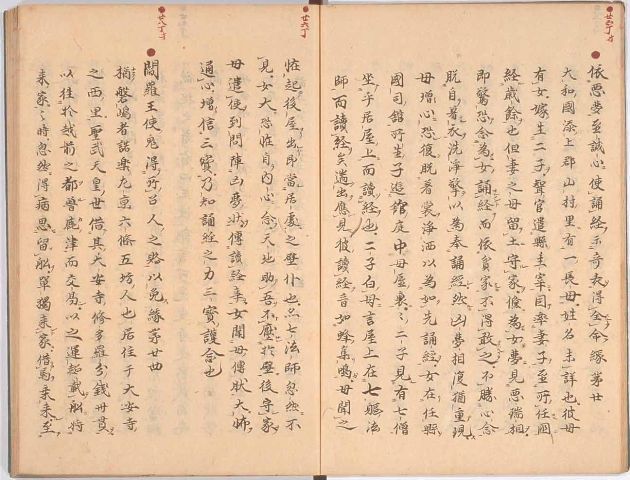 依悪夢至誠心使誦経示奇表得全命縁第廿
大和國添上郡山村里有一長母姓名未詳也彼母
有女嫁生二子聟官遣縣主宰因率妻子至所任國
経歳餘也但妻之母留土守家儵為女夢見悪瑞相
即驚恐念為女誦経而依貧家不得敢之不勝心念
脱自著衣洗浄擎以為奉誦経然凶夢相復猶重現
母増心恐復脱著裳浄洒以為如先誦経女在任縣
國司館所生子遊館庭中母居屋裏二子見有七僧
坐于居屋上而讀経也二子白母言屋上在七軀法
師而讀経矣遄出應見彼讀経音如蜂集鳴母聞之
怪起後屋出即當居處之壁仆也亦七法師忽然不
見女大恐怪自内心念天地助吾不厭於壁後守家
母遣使到問陳凶夢状傳讀経事女聞母傳状大怖
通心増信三寶乃知誦経之力三寶護念也
閻羅王使鬼得所召人之賂以免縁第廿四
楢磐嶋者諾樂左京六條五坊人也居住于大安寺
之西里聖武天皇世借其大安寺修多羅分銭卅貫
以往於越前之都魯鹿津而交易以之運超載舩将
来家之時忽然得病思留舩單獨来家借馬乗来至